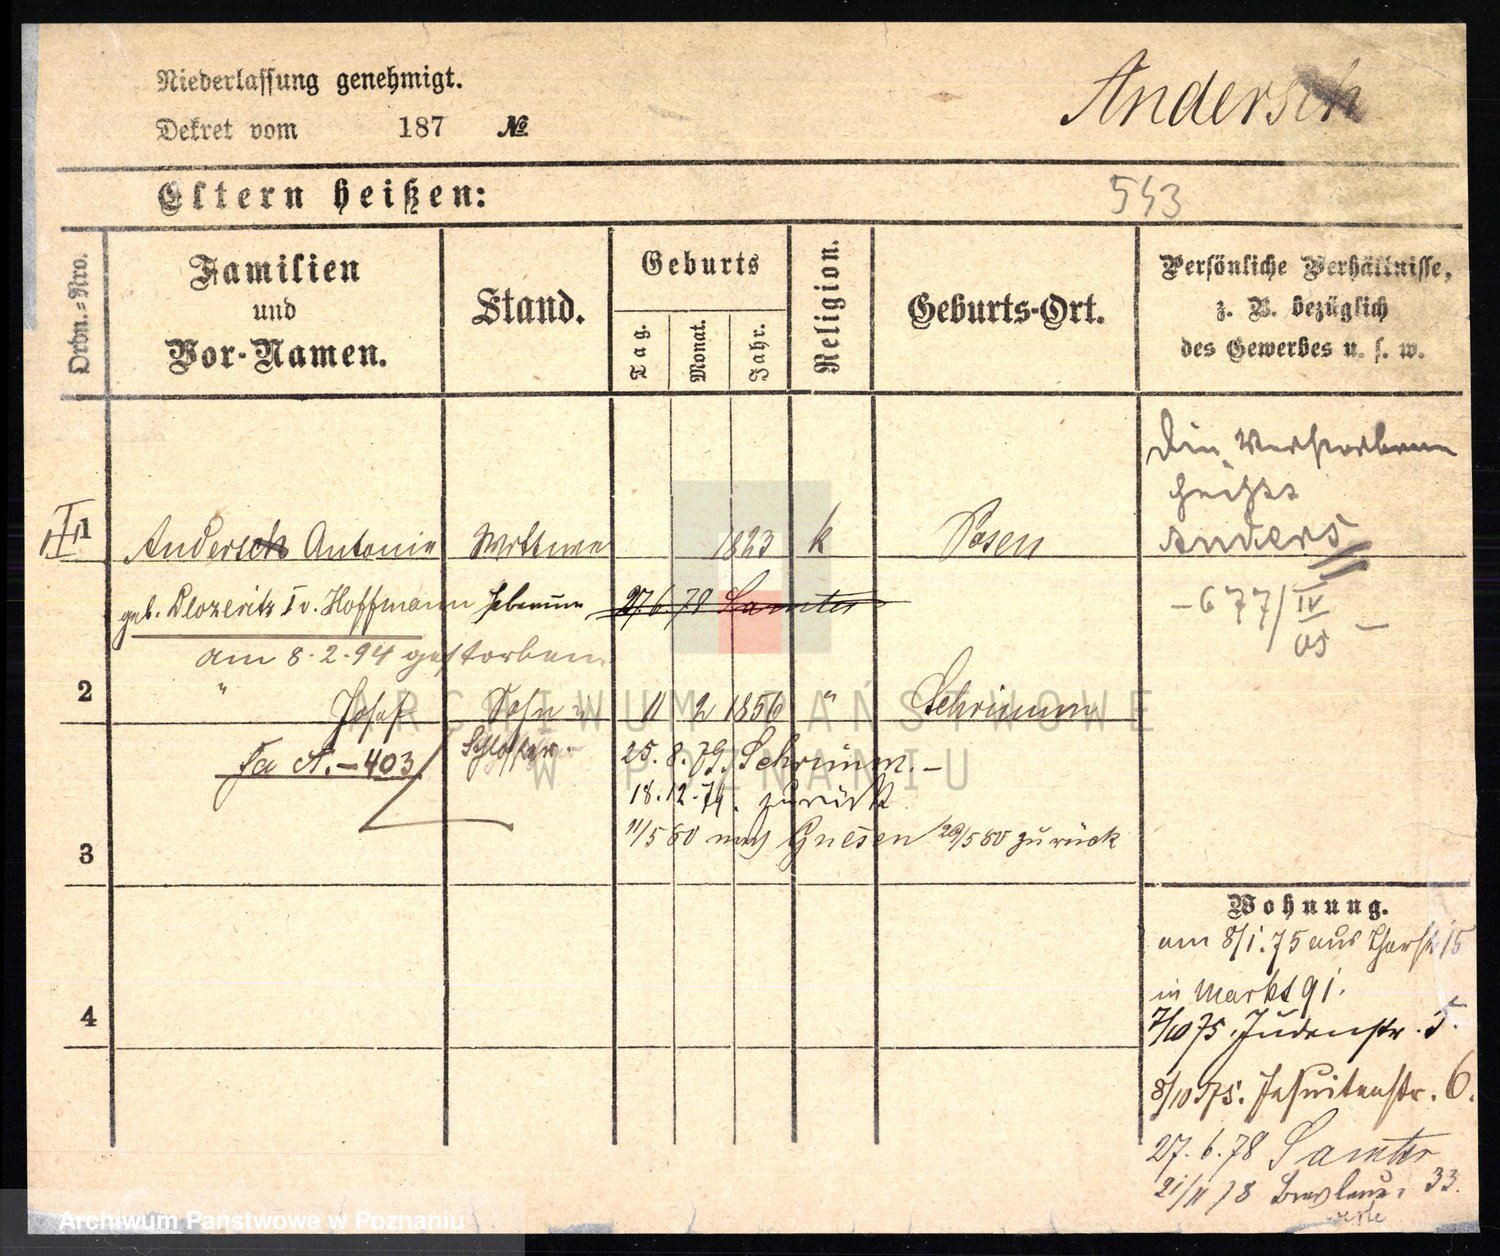 Niederlassung genehmigt.
Andersch
Dekret vom 187 №
Eltern heißen:
543
Ordn.-Nro.
Familien
und
Vor-Namen.
Stand.
Geburts
Tag.
Monat.
Jahr.
Religion.
Geburts-Ort.
Persönliche Verhältnisse,
z. B. bezüglich
des Gewerbes u. s. w.
Die Verstorbene
heißt
Anders
- 677/IV 05 -
1 Andersch Antonie Wittwe 1823 k Posen
geb. Dlozeritz I v. Hoffmann Hebamme 27 6 78 Samter
am 8.2.94 gestorben
2 " Josef Sohn 11 2 1856 " Schrimm
Fa A. - 403 Schlosser. 25. 8. 79. Schrimm. -
18. 12. 79. zurück
3 11/5 80 nach Gnesen 29/5 80 zurück
4
Wohnung.
am 8/1. 75 aus 15
in Markt 91.
7/10 75. Judenstr. 5.
8/10 75. Jesuitenstr. 6.
27. 6. 78 Samter
21/11 78 Breslauer 33.
ARCHIWUM PAŃSTWOWE
W POZNANIU
Archiwum Państwowe w Poznaniu